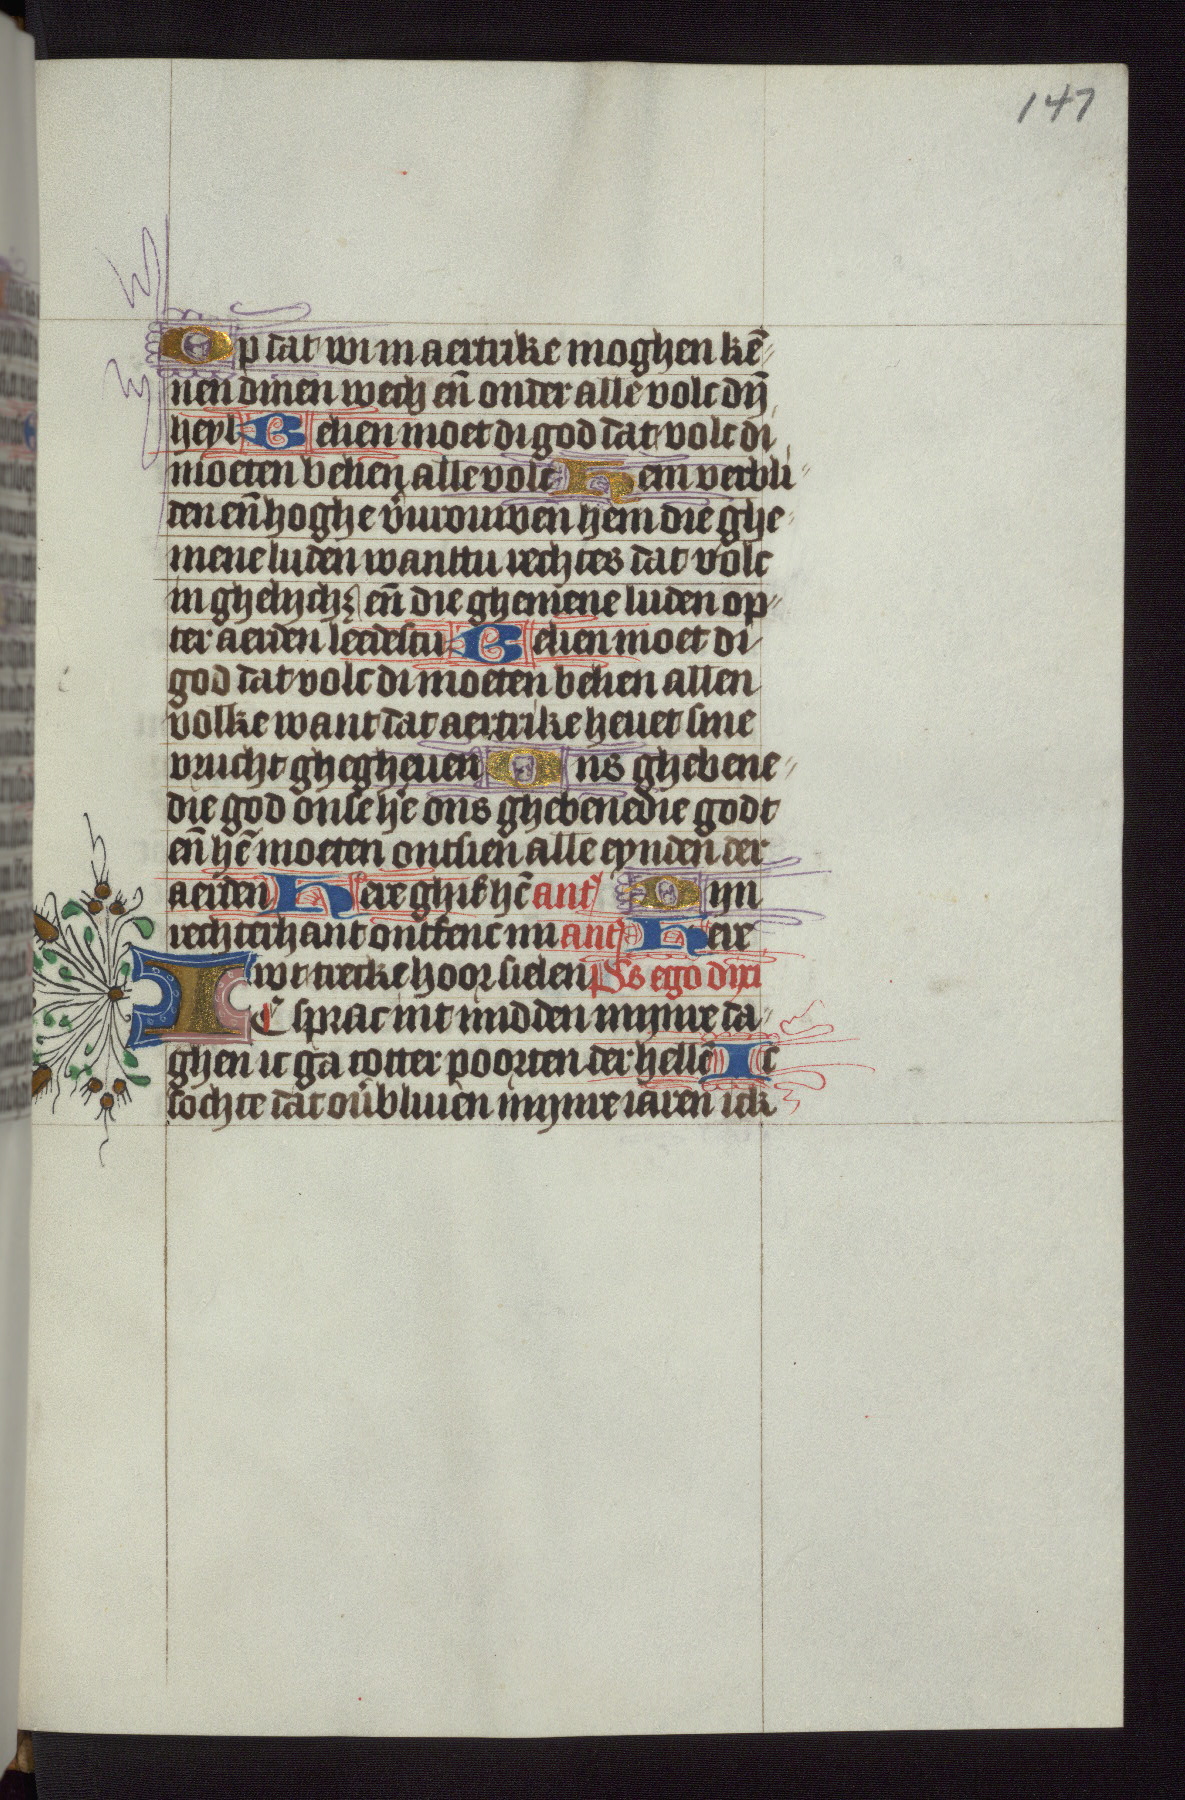 147
Op dat wi in aertrike moghen kē
nen dinen wech eñ onder alle volc dijñ
heyl Belien moet di god dat volc di
moeten belien alle volc Hem verbli
den eñ hoghe v̄vrouwen hem die ghe
mene luden wanttu rechtes dat volc
in ghelijch; eñ die ghemene luden op
ter aerden leedestu Belien moet di
god dat volc di moeten belien allen
volke want dat aertrike hevet sine
vrucht ghegheven Ons ghebene
die god onse he ons ghebenedie godt
eñ hē moeten ontsien alle eynden der
aerden Here ghif hē ant Dijn
rechterhant ontfenc mi ant Here
wt trecke hoor sielen Ps ego dixi
IC sprac int midden mijnre da
ghen ic ga totter poorten der hellē Ic
sochte dat ov̄bliven mijnre iaren ick